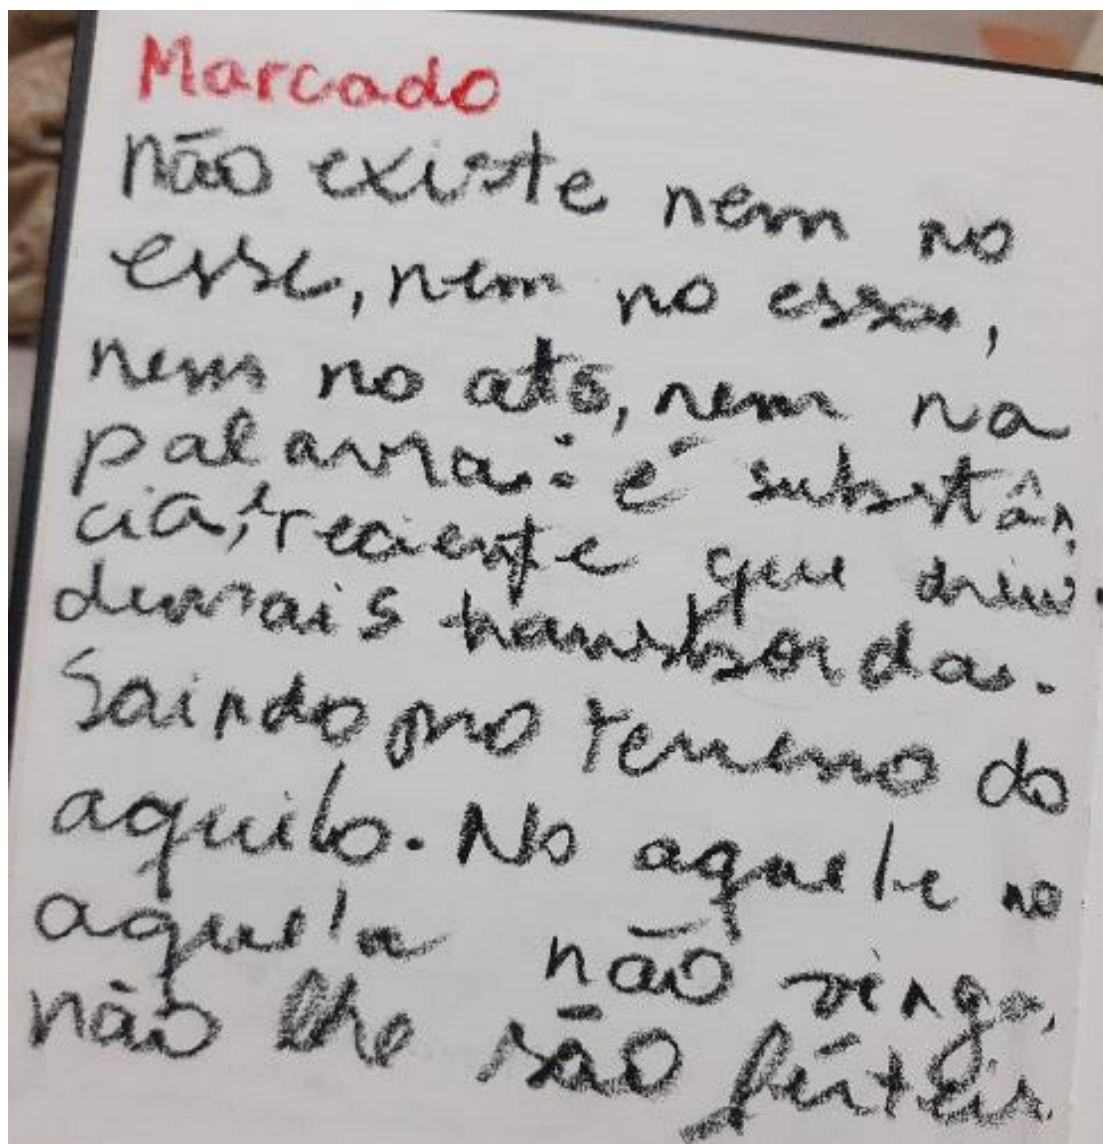 Marcado
não existe nem no
esse, nem no essa,
nem no ato, nem na
palavra: é substân
cia, recipiente que
demais transborda.
Saindo pro terreno do
aquilo. No aquele no
aquela não vinga,
não lhe são férteis.